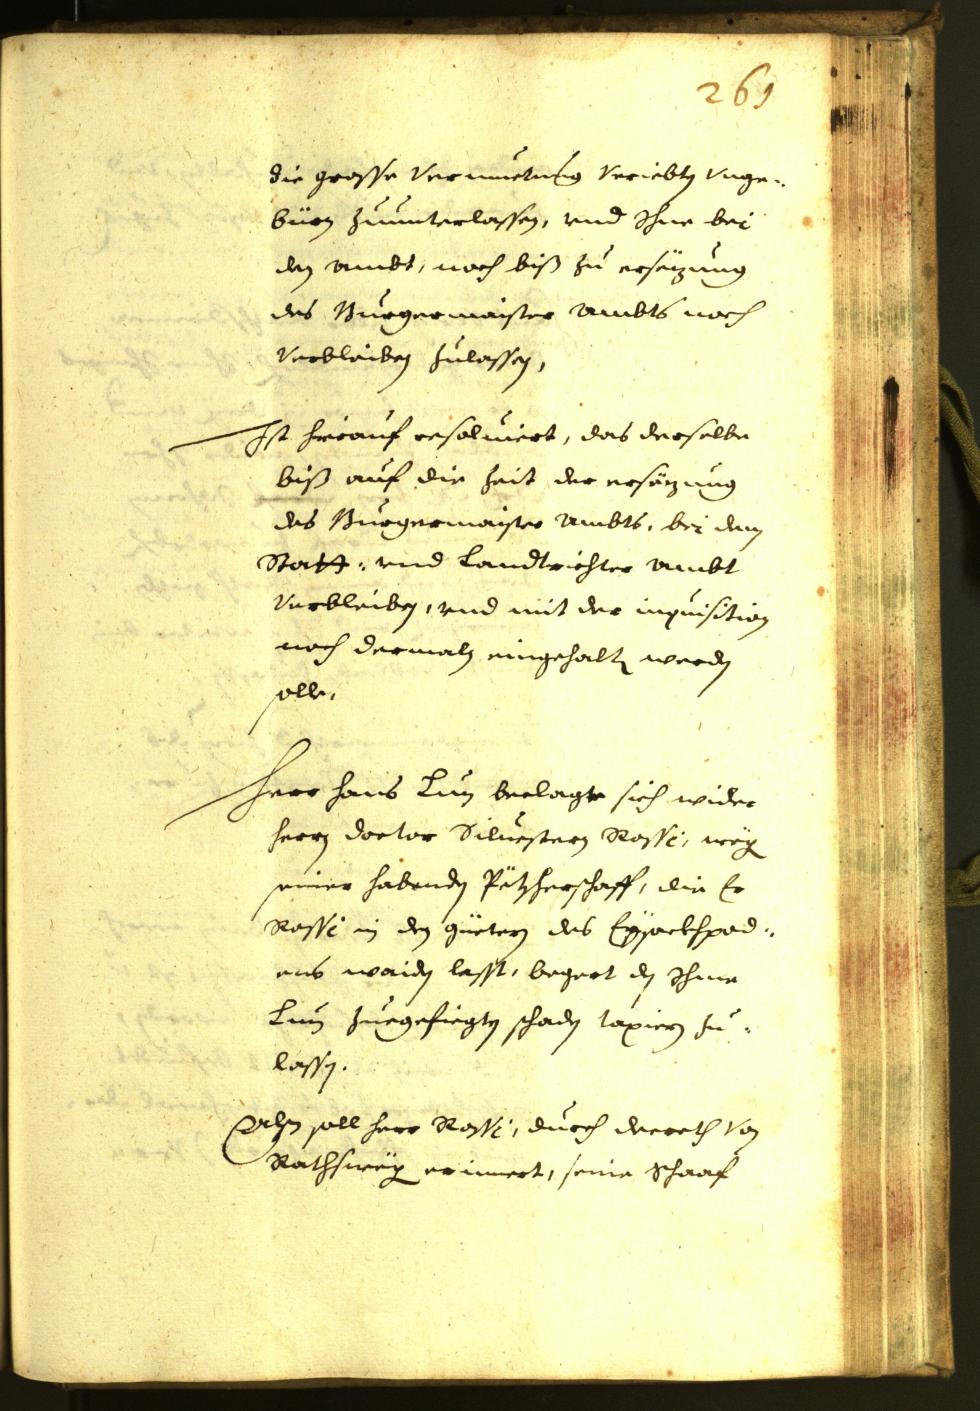 261
die grosse Vermuetung Veriebtn Unge-
bürn zuunterlassen, vnd Ihne bei
den ambt, noch biß zu ersezung
des Burgermaister Ambts noch
Verbleiben zulassen,
Ist hierauf resoluiert, das derselbe
biß auf die zeit der ersäzung
des Burgermaister Ambts, bei dem
Statt- vnd Landtrichter ambt
Verbleiben, vnd mit der inquisition
noch dermaln eingehaltn werden
solle,
Herr Hans Lun beclagte sich wider
herrn doctor Siluestern Rossi, weg
seiner habenden, die Er
Rossi in den güetern des
waiden lasst, begert den Ihme
Lun zuegefiegtn schaden taxiern zu-
lassen.
soll herr Rossi, durch decreth Von
Rathsweg erinnert, seine Schaaf